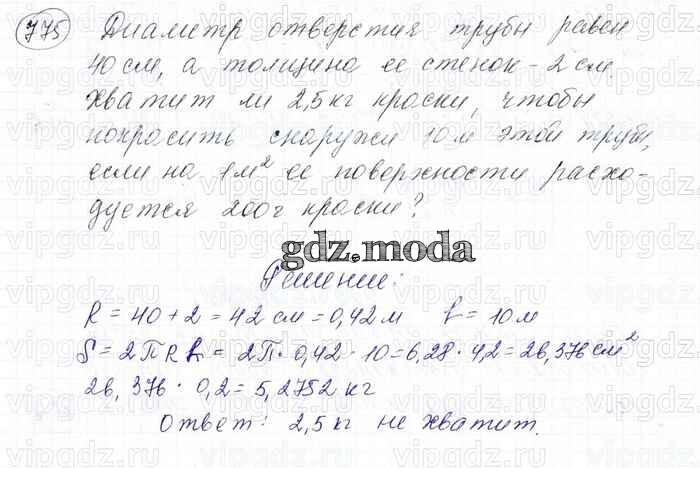 775 Диаметр отверстия трубы равен
40 см, а толщина ее стенок - 2 см.
Хватит ли 2,5 кг краски, чтобы
покрасить снаружи 10 м этой трубы,
если на 1 м² ее поверхности расхо-
дуется 200 г краски?
gdz.moda
Решение:
R = 40 + 2 = 42 см = 0,42 м ℓ = 10 м
S = 2πRℓ = 2π · 0,42 · 10 = 6,28 · 4,2 = 26,376 см²
26,376 · 0,2 = 5,2752 кг
Ответ: 2,5 кг не хватит.